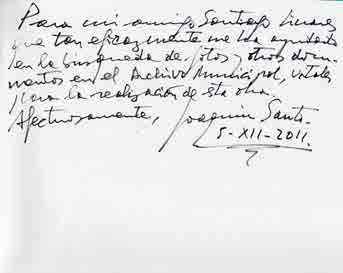 Para mi amigo Santiago Linares
que tan eficazmente me ha ayudado
en la búsqueda de fotos y otros docu-
mentos en el Archivo Municipal, vitales
para la realización de esta obra.
Afectuosamente, Joaquín Santo
5-XII-2011.